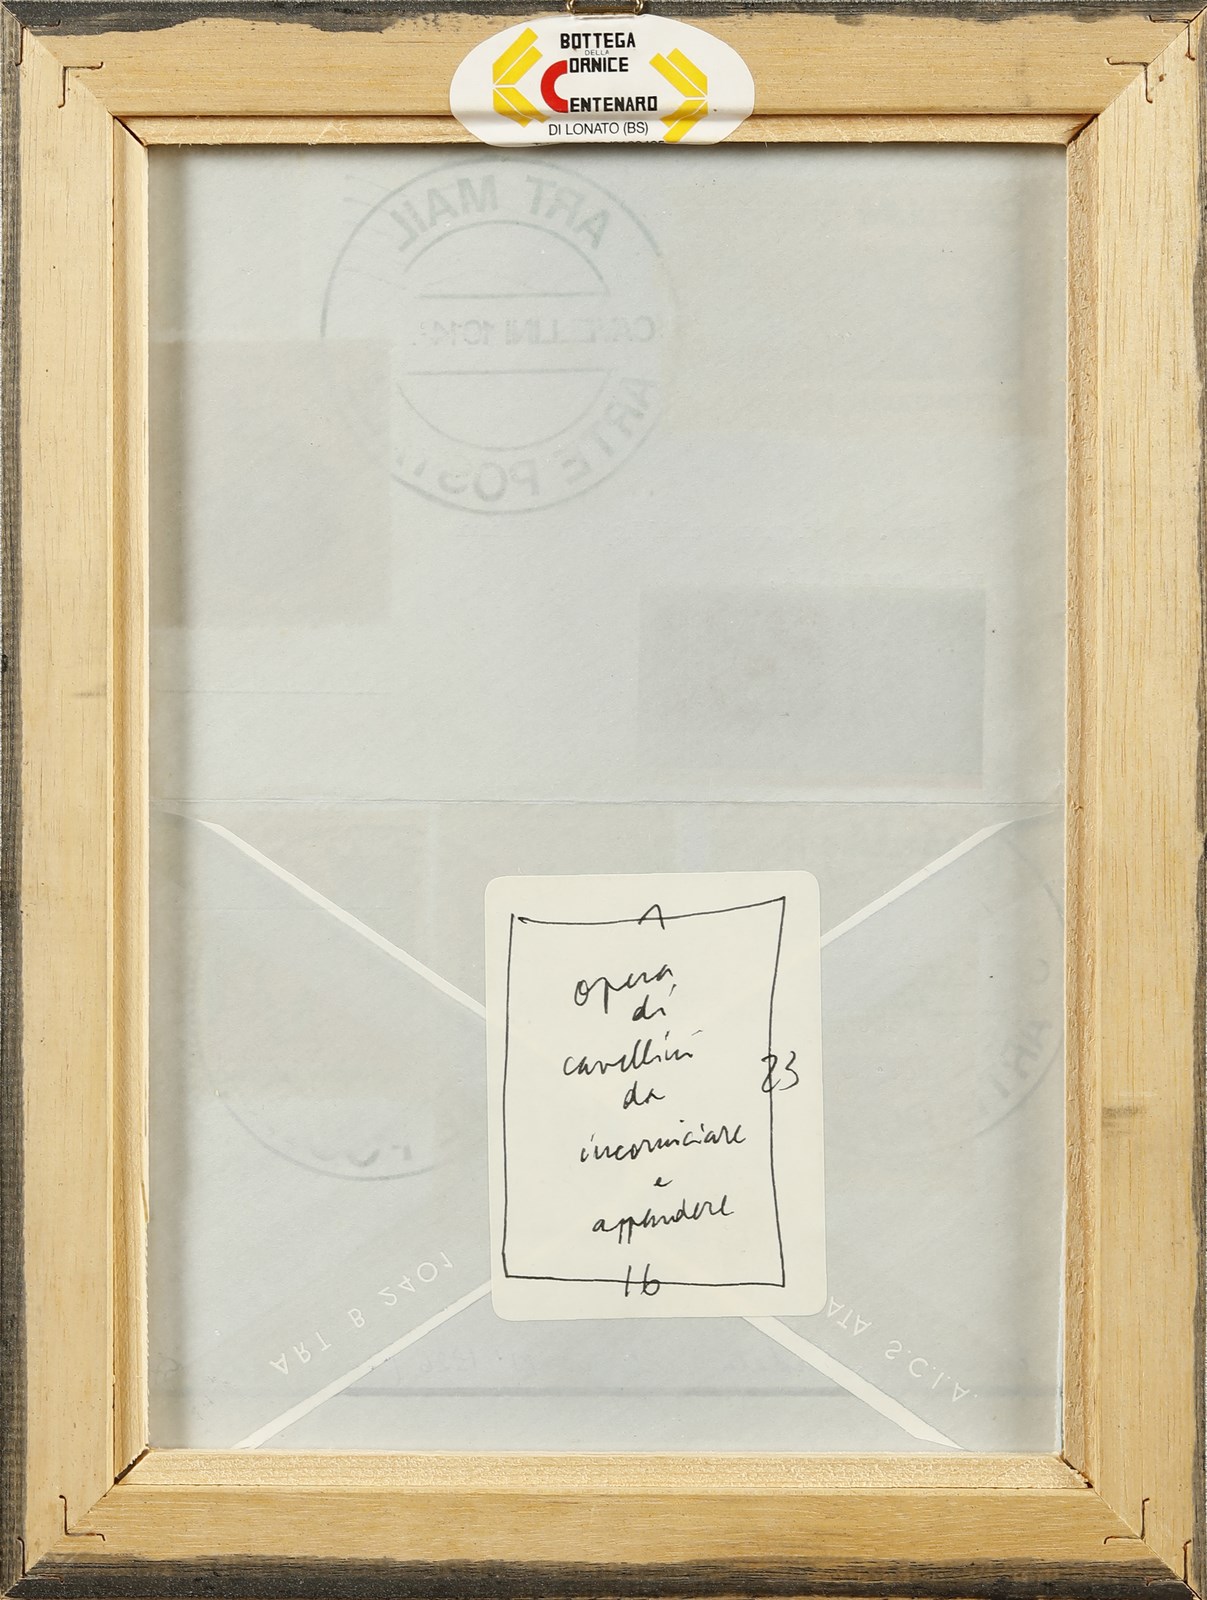 BOTTEGA
DELLA
CORNICE
CENTENARO
DI LONATO (BS)
ART MAIL
CAVELLINI 1914-
ARTE POST
opera
di
cavellini
da
incorniciare
e
appendere
23
16
ART B 2401
ATA S.C.I.A.
ART